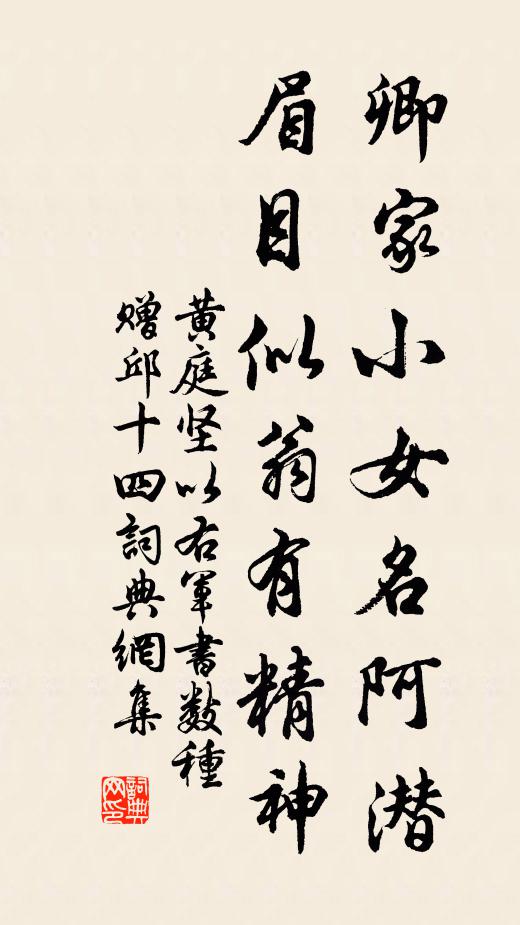 卿家小女名阿潜
眉目似翁有精神
黄庭坚以右軍書数種
赠邱十四詞典網集
詞典网印